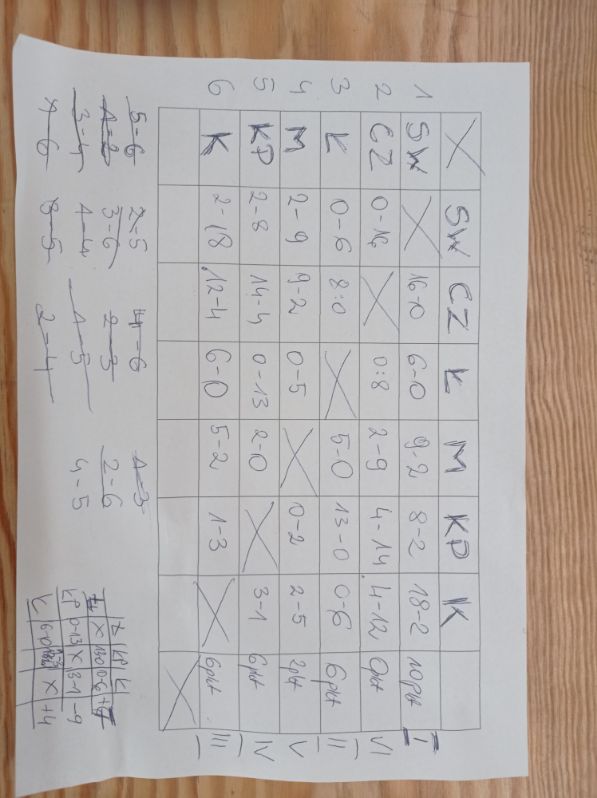 SW CZ Ł M KP K
1 SW 16-0 6-0 9-2 8-2 18-2 10pkt I
2 CZ 0-16 0:8 2-9 4-14 4-12 0pkt VI
3 Ł 0-6 8:0 5-0 13-0 0-6 6pkt II
4 M 2-9 9-2 0-5 0-2 2-5 2pkt V
5 KP 2-8 14-4 0-13 2-0 3-1 6pkt IV
6 K 2-18 12-4 6-0 5-2 1-3 6pkt III
5-6 2-5 4-6 1-3
1-2 3-6 2-3 2-6
3-4 1-4 1-5 4-5
1-6 3-5 2-4
Ł KP K
Ł X 13-0 0-6 +7
KP 0-13 X 3-1 -9
K 6-0 1-3 X +4